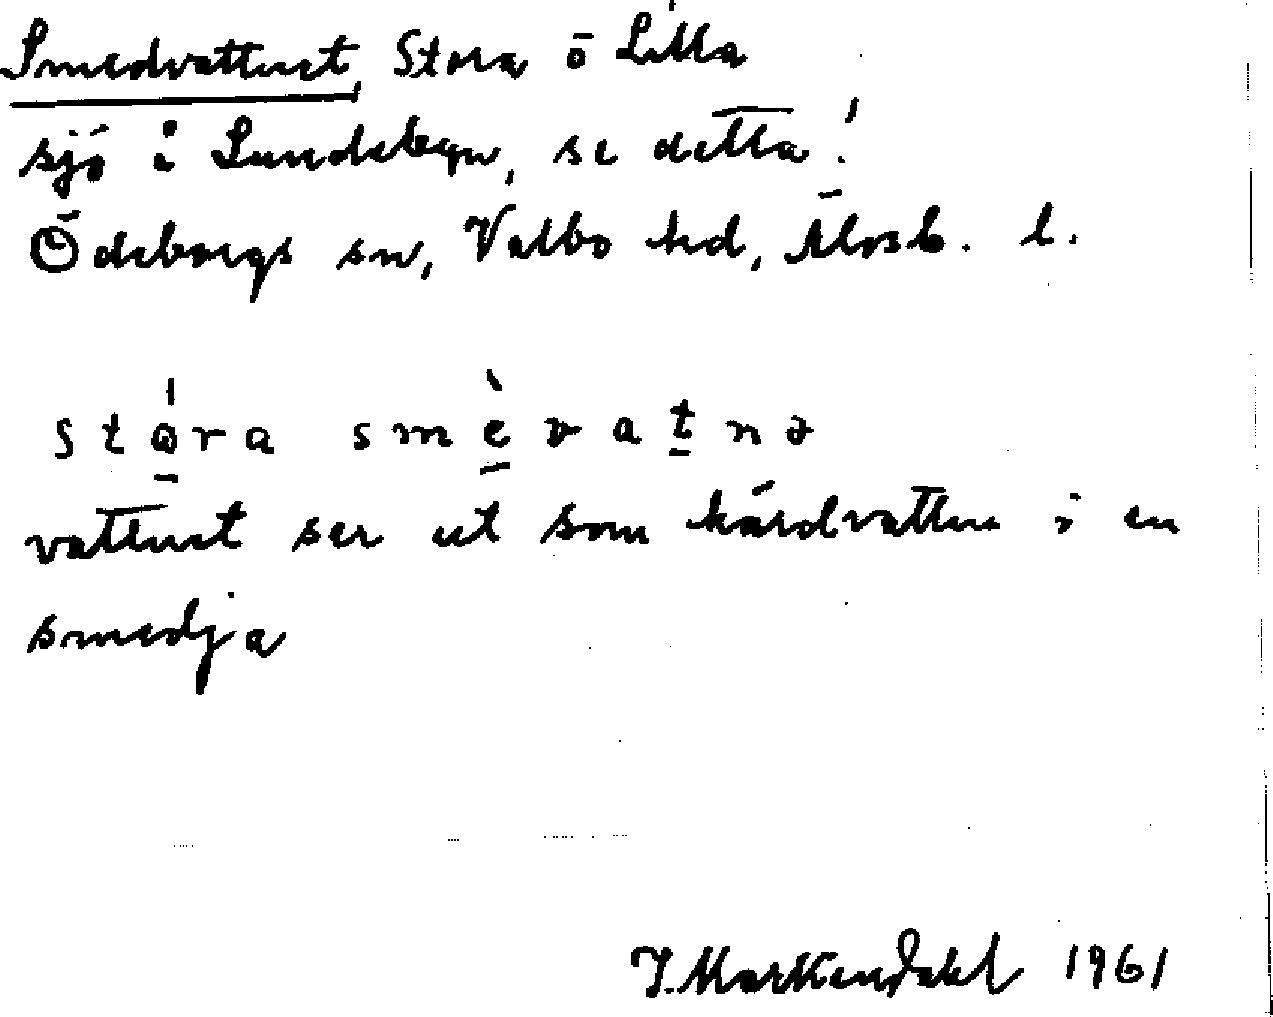 Smedvattnet, Stora ö Lilla
sjö i Lundebyn, se detta!
Ödeborgs sn, Valbo hd, Älvsb. l.
stóra smèvatnə
vattnet ser ut som härdvatten i en
smedja
J. Markendahl 1961